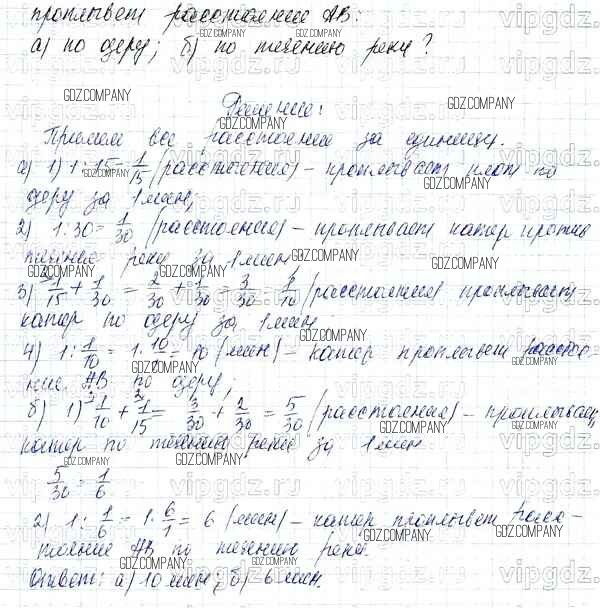 проплывет расстояние АВ:
а) по озеру; б) по течению реки?
Решение:
Примем все расстояние за единицу.
а) 1) 1 : 15 = 1/15 (расстояния) – проплывает плот по
озеру за 1 мин;
2) 1 : 30 = 1/30 (расстояния) – проплывает катер против
течения реки за 1 мин;
3) 1/15 + 1/30 = 2/30 + 1/30 = 3/30 = 1/10 (расстояния) проплывает
катер по озеру за 1 мин.
4) 1 : 1/10 = 1 · 10/1 = 10 (мин) – катер проплывет расстоя-
ние АВ по озеру;
б) 1) 1/10 + 1/15 = 3/30 + 2/30 = 5/30 (расстояния) – проплывает
катер по течению реки за 1 мин
5/30 = 1/6
2) 1 : 1/6 = 1 · 6/1 = 6 (мин) – катер проплывет расс-
тояние АВ по течению реки.
Ответ: а) 10 мин; б) 6 мин.